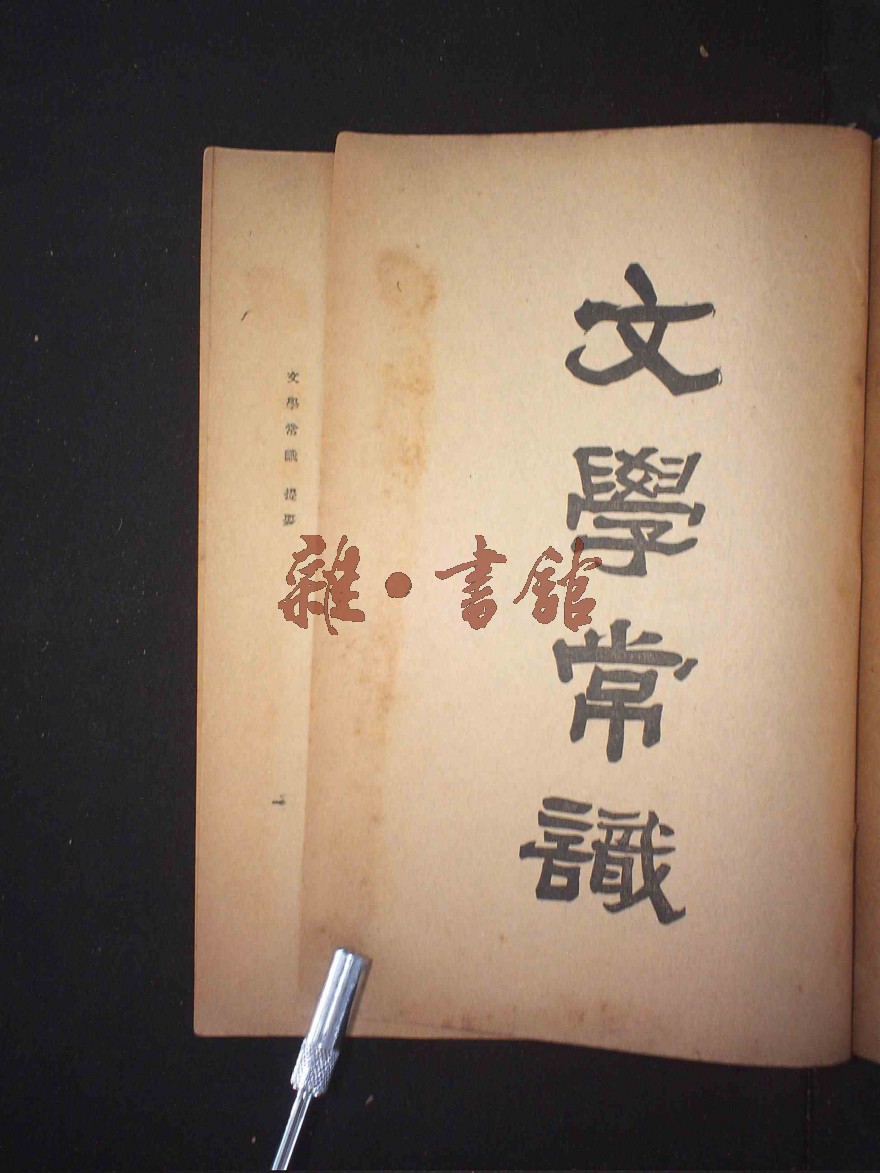 文學常識
文學常識 提要
一
雜·書館